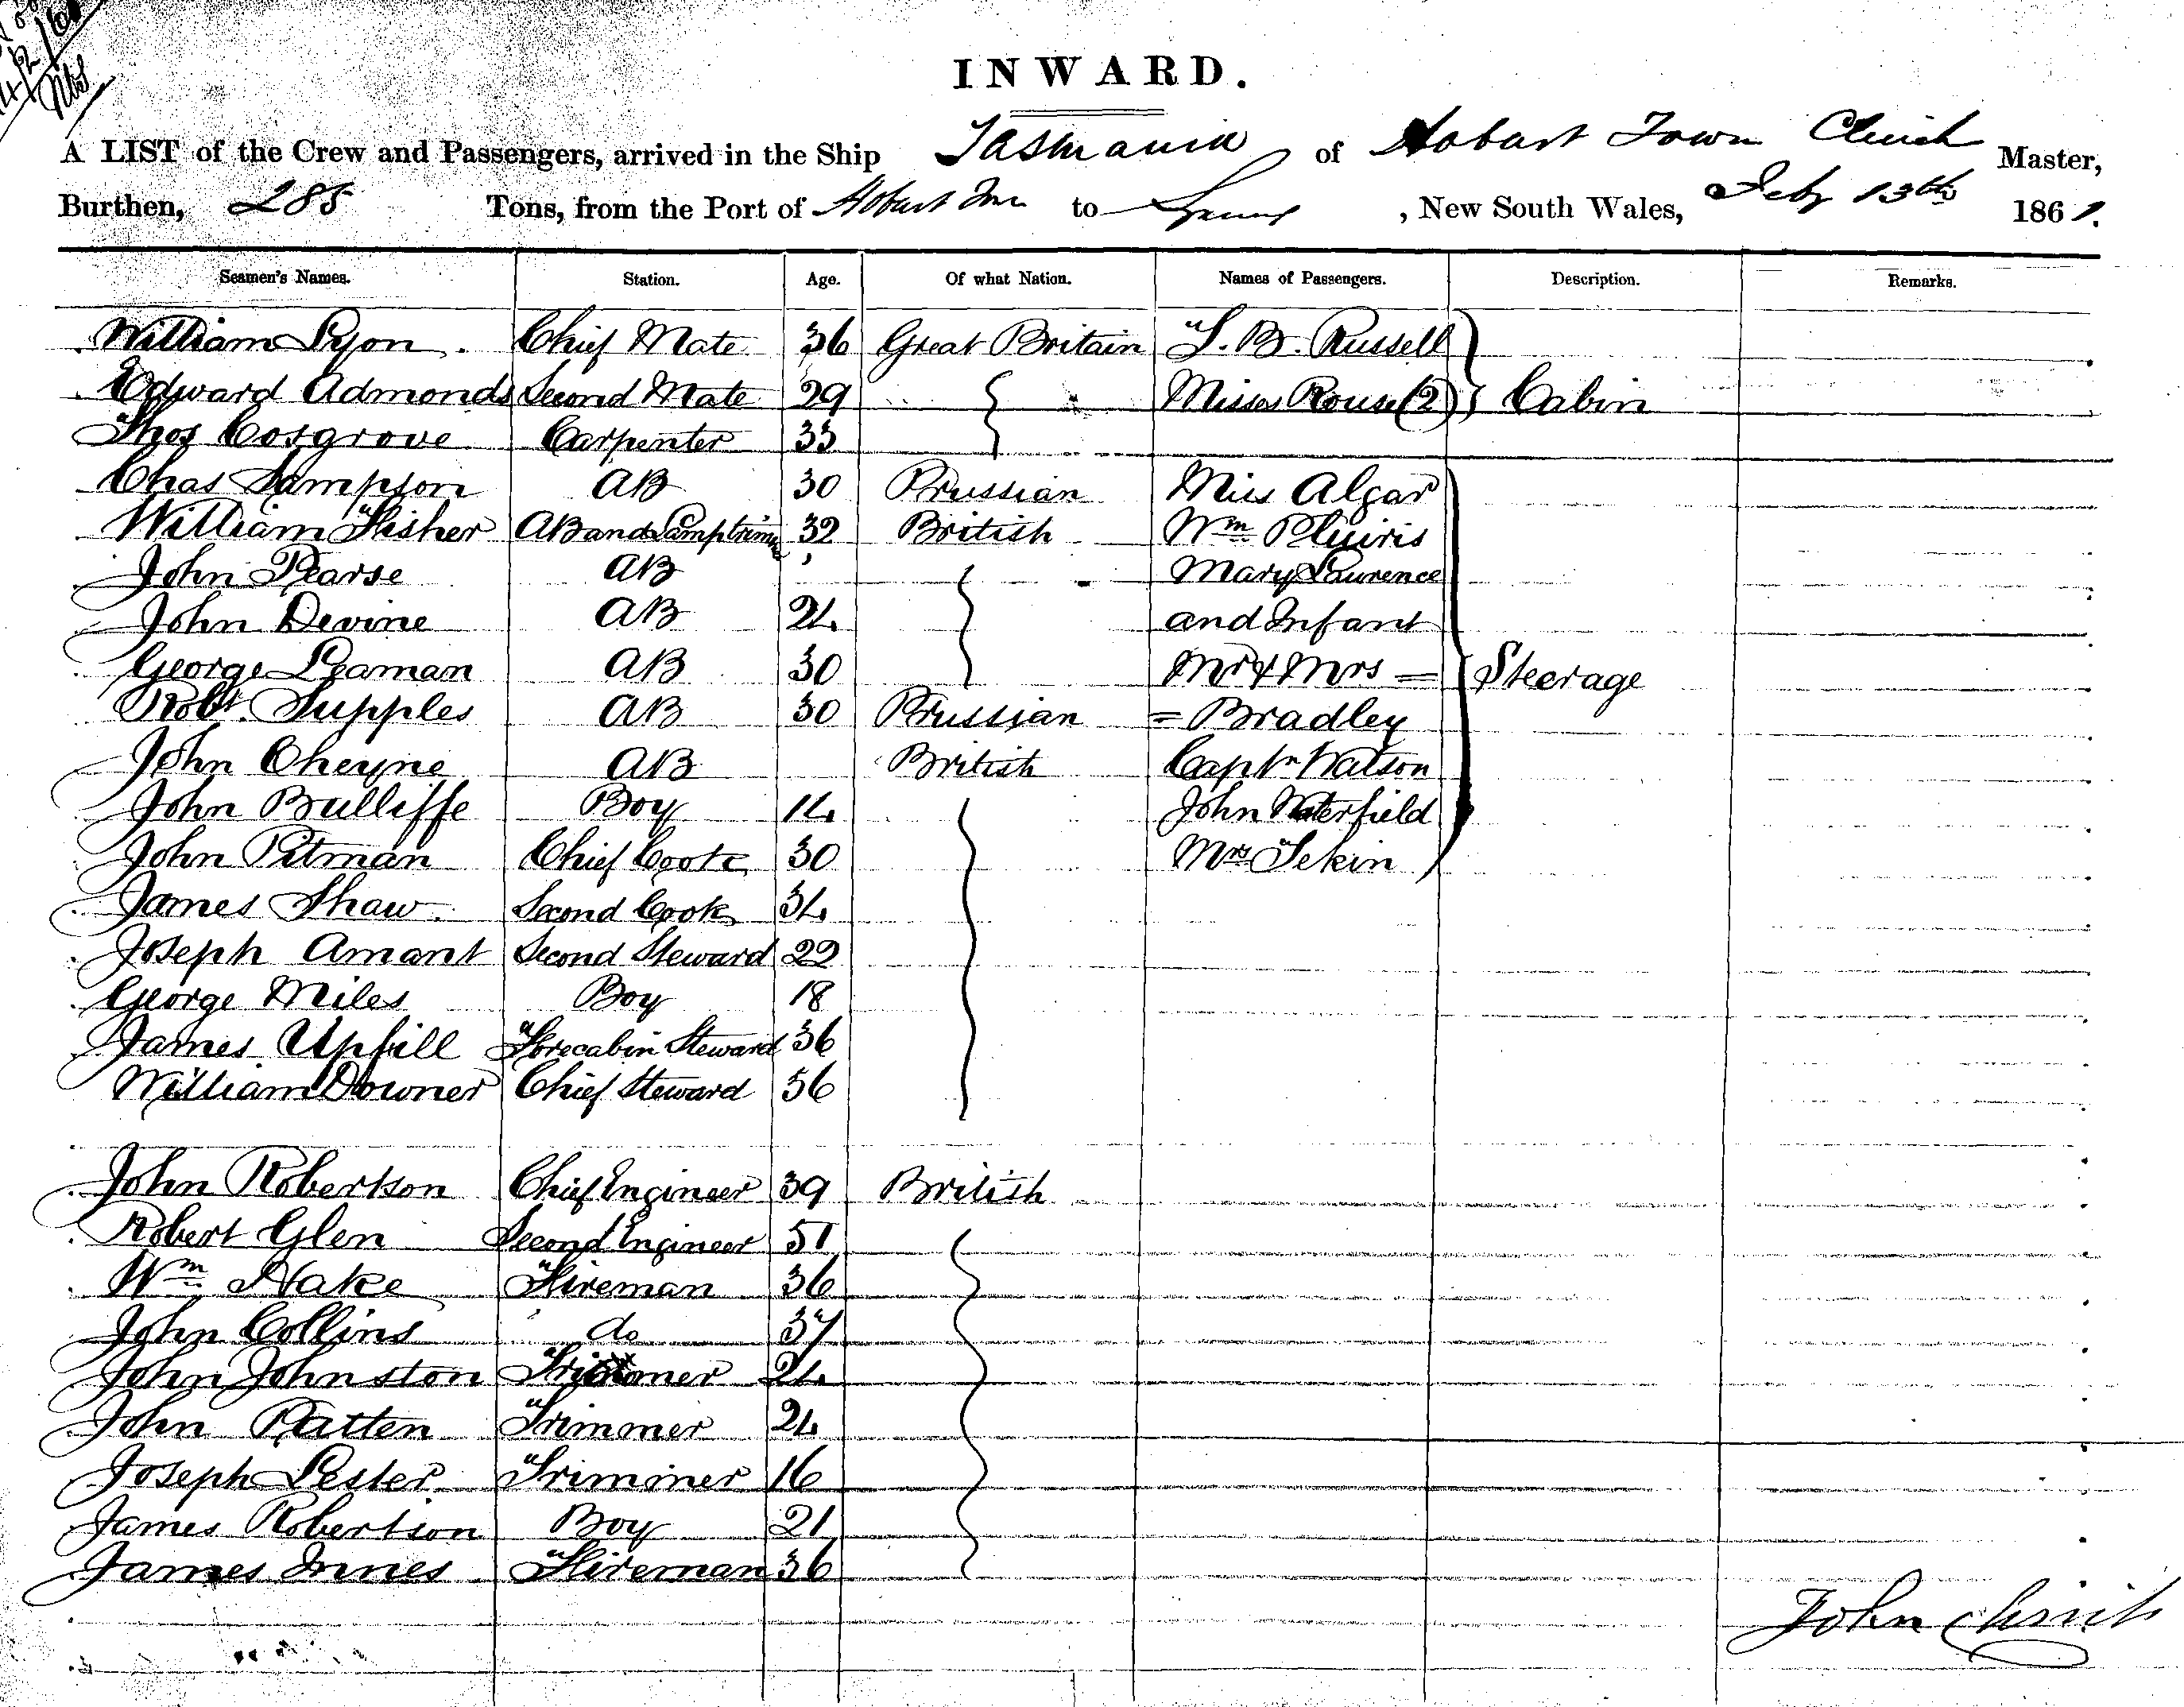 INWARD.
A LIST of the Crew and Passengers, arrived in the Ship Tasmania of Hobart Town Clinch Master,
Burthen, 285 Tons, from the Port of Hobart Tn to Sydney, New South Wales, Feby 13th 1861.
Seamen's Names. Station. Age. Of what Nation. Names of Passengers. Description. Remarks.
William Lyon. Chief Mate 36 Great Britain T. B. Russell
Edward Admonds Second Mate 29 Misses Rouse (2) Cabin
Thos Cosgrove Carpenter 33
Chas Sampson AB 30 Prussian Miss Algar
William Fisher AB and Lamptrimmer 32 British Wm
John Pearse AB Mary Lawrence
John Devine AB 24 and Infant
George Leaman AB 30 Mr & Mrs = Steerage
Robt. Supples AB 30 Prussian = Bradley
John Cheyne AB British Captn Watson
John Bulliffe Boy 14 John Waterfield
John Pitman Chief Cook 30 Mrs Tekin
James Shaw Second Cook 34
Joseph Amant Second Steward 22
George Miles Boy 18
James Upfill Forecabin Steward 36
William Downer Chief Steward 36
John Robertson Chief Engineer 39 British
Robert Glen Second Engineer 51
Wm Hake Fireman 36
John Collins do 37
John Johnston Trimmer 24
John Patten Trimmer 24
Joseph Lester Trimmer 16
James Robertson Boy 21
James Innes Fireman 36
John Clinch